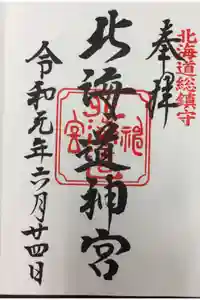 北海道総鎮守
奉拝
北海道神宮
北海道神宮
令和元年六月廿四日